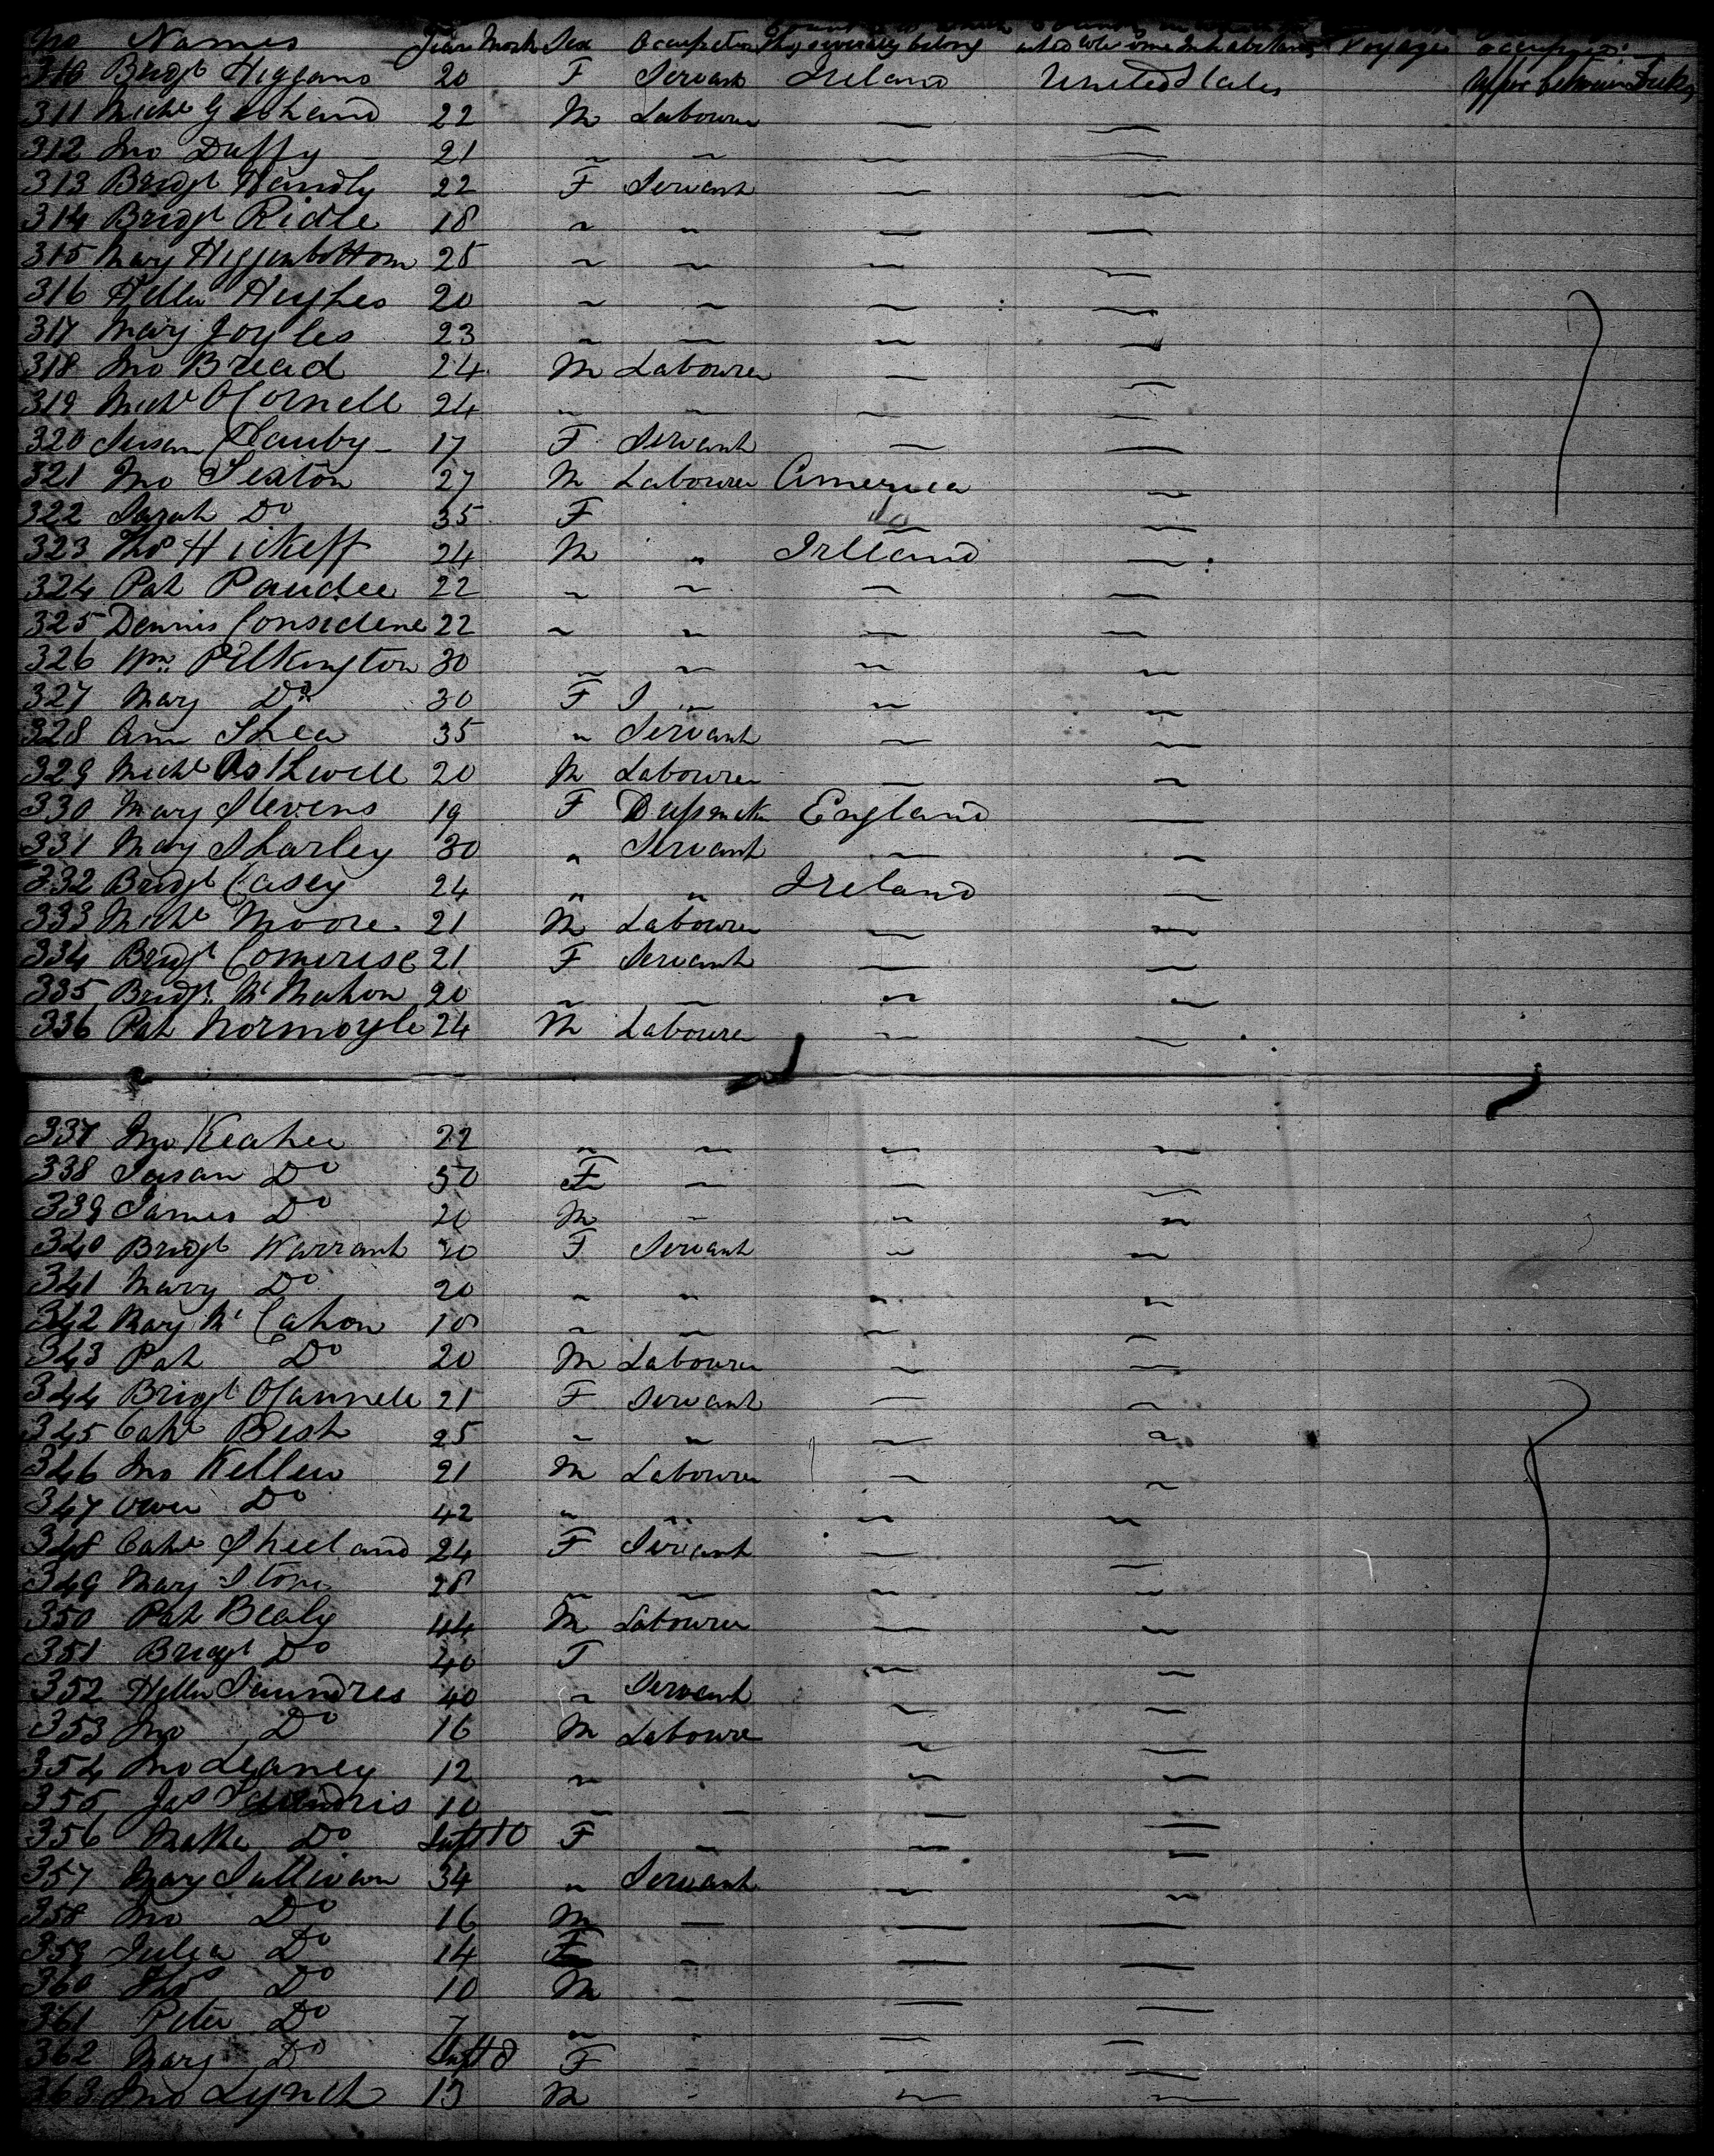 No Names Years Mork Sex Occupation they severally belong inhabitants Voyage
310 Bridgt Higgans 20 F Servant Ireland United States Upper between Decks
311 Michl 22 M Labourer — —
312 Jno Duffy 21 " " — —
313 Bridgt Handly 22 F Servant — —
314 Bridgt Ridle 18 " " — —
315 Mary Higgenbottom 25 " " — —
316 Hellen Hughes 20 " " — —
317 Mary Joyles 23 " " — —
318 Jno Bread 24 M Labourer — —
319 Michl OConnell 24 " " — —
320 Susan Clauby 17 F Servant — —
321 Jno Sexton 27 M Labourer America —
322 Sarah Do 35 F do —
323 Thos Hickeff 24 M " Irleand —
324 Pat Paudee 22 " " — —
325 Dennis Considene 22 " " — —
326 Wm Pilkington 30 " " — —
327 Mary Do 30 F " — —
328 Ann Shea 35 " Servant — —
329 Michl 20 M Labourer — —
330 Mary Stevens 19 F England —
331 Mary Sharley 30 " Servant — —
332 Bridgt Casey 24 " " Ireland —
333 Michl Moore 21 M Labourer — —
334 Bridgt Comerise 21 F Servant — —
335 Bridgt McMahon 20 " — — —
336 Pat Normoyle 24 M Labourer — —
337 Jno Keahee 22 " — — —
338 Susan Do 50 F — — —
339 James Do 20 M — — —
340 Bridgt Warrant 20 F Servant — —
341 Mary Do 20 " " — —
342 Mary McCahon 18 " — — —
343 Pat Do 20 M Labourer — —
344 Bridgt OConnell 21 F Servant — —
345 Cath Besh 25 " " — —
346 Jno Kelleu 21 M Labourer — —
347 Owen Do 42 " " — —
348 Cath Sheeland 24 F Servant — —
349 Mary Stone 28 " — — —
350 Pat Bealy 44 M Labourer — —
351 Bridgt Do 40 F — —
352 Hellen Saundres 40 " Servant — —
353 Jno Do 16 M Labourer — —
354 Jno Leaney 12 " — —
355 Jas Saundris 10 — — — —
356 Do Inft 10 F " — —
357 Mary Sullivan 34 " Servant — —
358 Jno Do 16 M — — —
359 Julia Do 14 F — — —
360 Thos Do 10 M — — —
361 Peter Do 7 " — —
362 Mary Do Inft 8 F — —
363 Jno Lynch 13 M — —